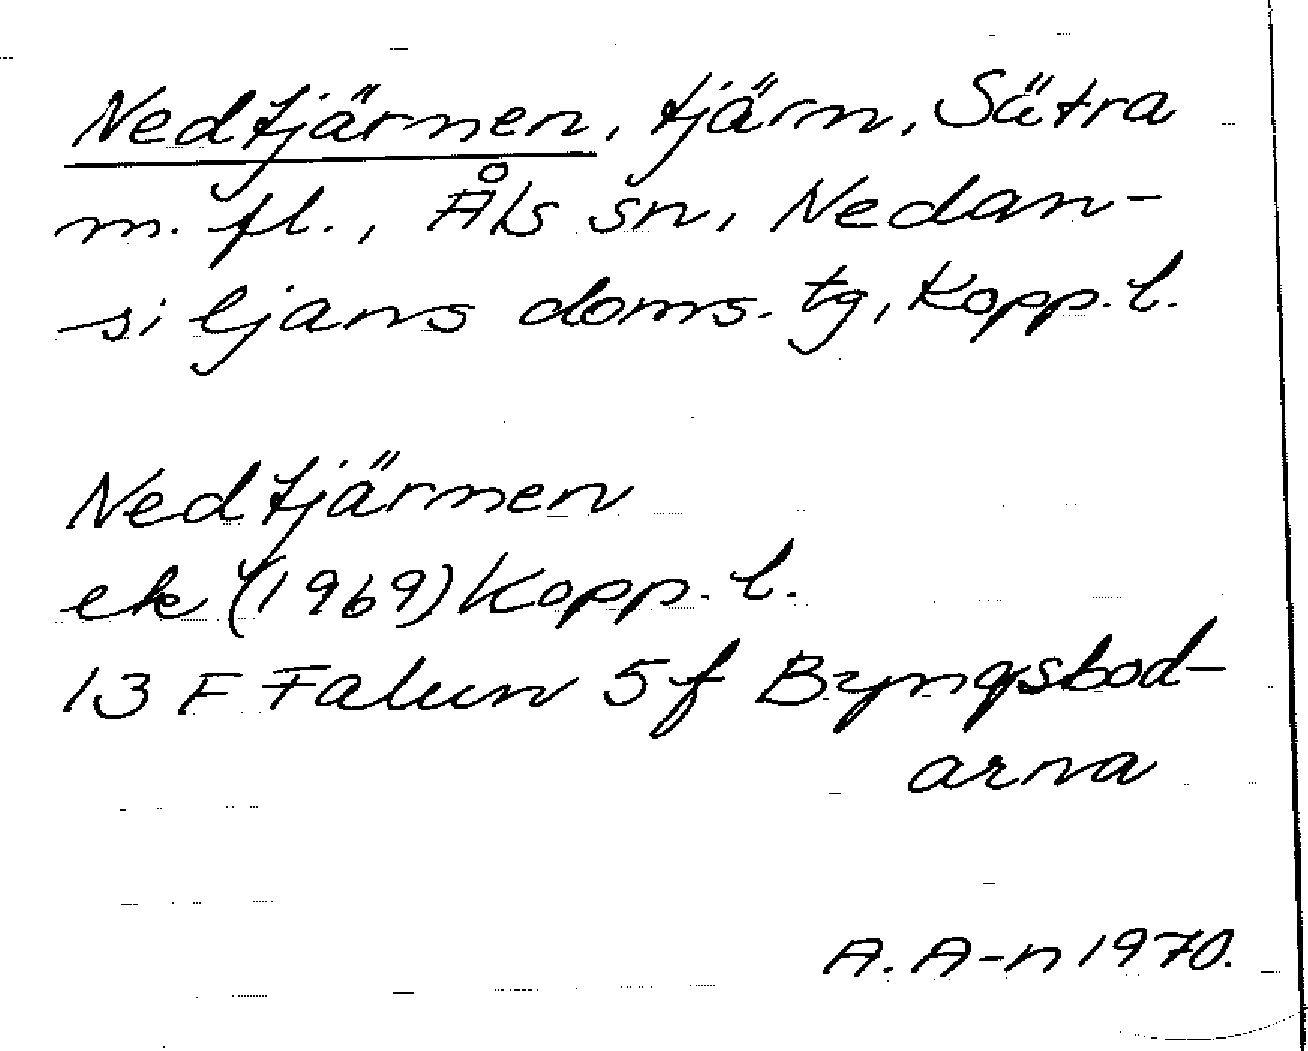 Nedtjärnen, tjärn, Sätra
m. fl., Åls sn, Nedan-
siljans doms. tg, Kopp. l.
Nedtjärnen
ek (1969) Kopp. l.
13 F Falun 5f Byngsbod-
arna
A. A-n 1970.